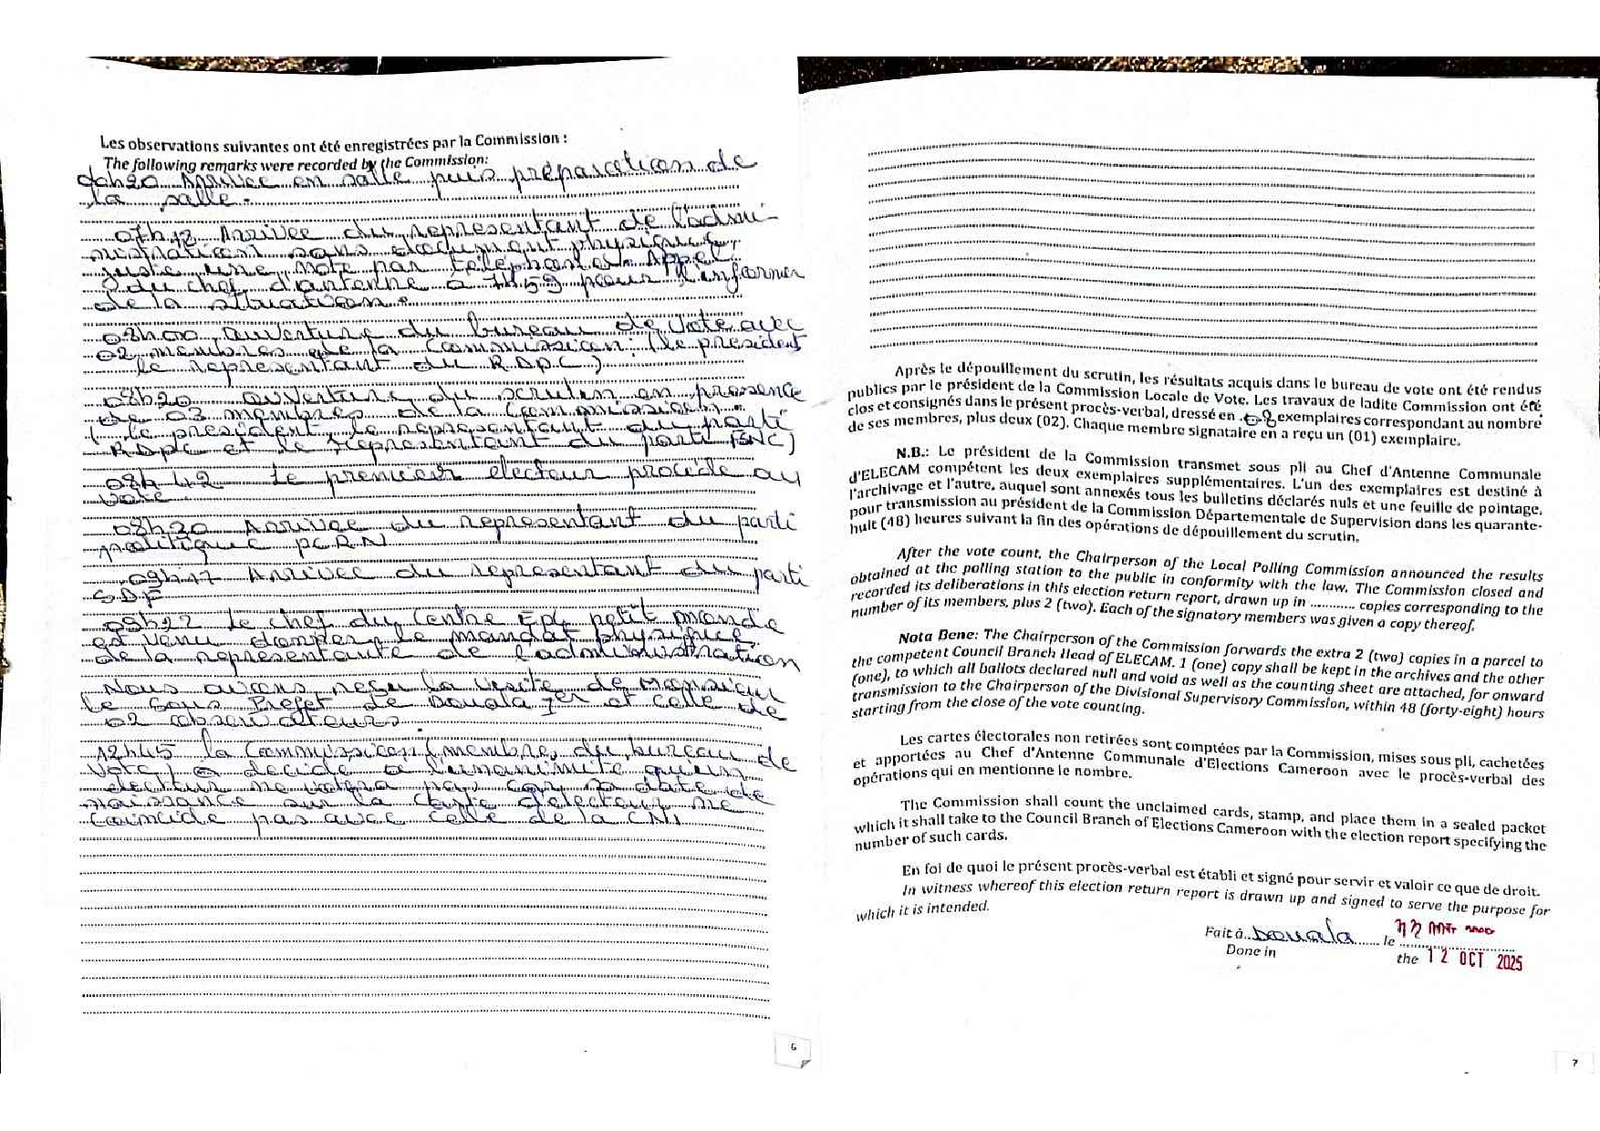 Les observations suivantes ont été enregistrées par la Commission :
The following remarks were recorded by the Commission:
Arrivée en salle puis préparation de
la salle.
Arrivée du representant de l'admi-
nistration sans document physique
juste une note par téléphone. Appel
du chef d'antenne à 7H59 pour l'informer
de la situation.
08h00 Ouverture du bureau de vote avec
02 membres de la Commission: (le president
le representant du RDPC)
08h20 ouverture du scrutin en presence
de 03 membres de la Commission.
( le president, le representant du parti
RDPC et le representant du parti
08h42 Le premier electeur procède au
vote.
08h20 Arrivée du representant du parti
politique PCRN
09h17 Arrivée du representant du parti
SDF
09h22 le chef du Centre petit monde
est venu donner le mandat physique
de la representante de l'administration
Nous avons reçu la visite de Monsieur
le Sous Prefet de Douala 1er et celle de
02 observateurs
12h45 la Commission (membre du bureau de
vote) a decidé à l'unanimité qu'un
electeur ne votera pas car sa date de
naissance sur la carte d'electeur ne
coincide pas avec celle de la CNI
6
Après le dépouillement du scrutin, les résultats acquis dans le bureau de vote ont été rendus
publics par le président de la Commission Locale de Vote. Les travaux de ladite Commission ont été
clos et consignés dans le présent procès-verbal, dressé en exemplaires correspondant au nombre
de ses membres, plus deux (02). Chaque membre signataire en a reçu un (01) exemplaire.
N.B.: Le président de la Commission transmet sous pli au Chef d'Antenne Communale
d'ELECAM compétent les deux exemplaires supplémentaires. L'un des exemplaires est destiné à
l'archivage et l'autre, auquel sont annexés tous les bulletins déclarés nuls et une feuille de pointage,
pour transmission au président de la Commission Départementale de Supervision dans les quarante-
huit (48) heures suivant la fin des opérations de dépouillement du scrutin.
After the vote count, the Chairperson of the Local Polling Commission announced the results
obtained at the polling station to the public in conformity with the law. The Commission closed and
recorded its deliberations in this election return report, drawn up in ........... copies corresponding to the
number of its members, plus 2 (two). Each of the signatory members was given a copy thereof.
Nota Bene: The Chairperson of the Commission forwards the extra 2 (two) copies in a parcel to
the competent Council Branch Head of ELECAM. 1 (one) copy shall be kept in the archives and the other
(one), to which all ballots declared null and void as well as the counting sheet are attached, for onward
transmission to the Chairperson of the Divisional Supervisory Commission, within 48 (forty-eight) hours
starting from the close of the vote counting.
Les cartes électorales non retirées sont comptées par la Commission, mises sous pli, cachetées
et apportées au Chef d'Antenne Communale d'Elections Cameroon avec le procès-verbal des
opérations qui en mentionne le nombre.
The Commission shall count the unclaimed cards, stamp, and place them in a sealed packet
which it shall take to the Council Branch of Elections Cameroon with the election report specifying the
number of such cards.
En foi de quoi le présent procès-verbal est établi et signé pour servir et valoir ce que de droit.
In witness whereof this election return report is drawn up and signed to serve the purpose for
which it is intended.
Fait à Douala le
Done in the 12 OCT 2025
7